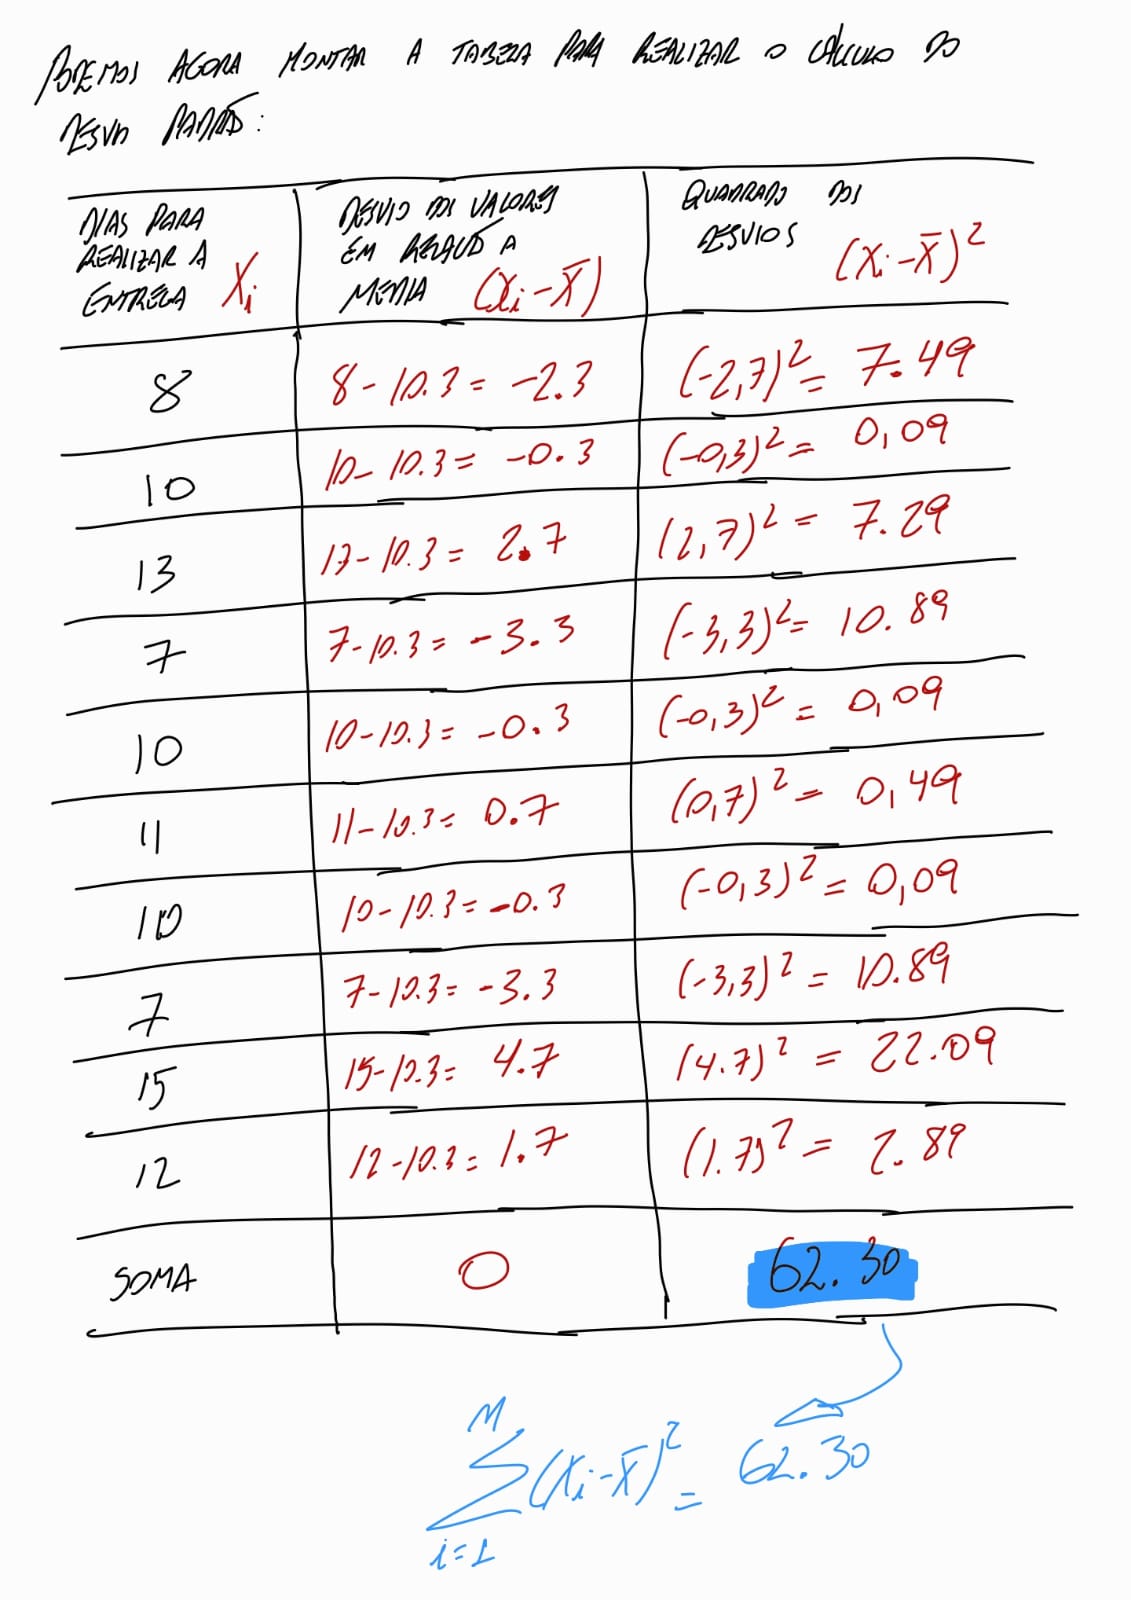 PODEMOS AGORA MONTAR A TABELA PARA REALIZAR O CÁLCULO DO
DESVIO PADRÃO:
DIAS PARA
REALIZAR A
ENTREGA Xi
DESVIO DOS VALORES
EM RELAÇÃO A
MEDIA (Xi - X̄)
QUADRADO DOS
DESVIOS
(Xi - X̄)²
8 8 - 10.3 = -2.3 (-2,7)² = 7.49
10 10 - 10.3 = -0.3 (-0,3)² = 0,09
13 13 - 10.3 = 2.7 (2,7)² = 7.29
7 7 - 10.3 = -3.3 (-3,3)² = 10.89
10 10 - 10.3 = -0.3 (-0,3)² = 0,09
11 11 - 10.3 = 0.7 (0,7)² = 0,49
10 10 - 10.3 = -0.3 (-0,3)² = 0,09
7 7 - 10.3 = -3.3 (-3,3)² = 10.89
15 15 - 10.3 = 4.7 (4.7)² = 22.09
12 12 - 10.3 = 1.7 (1.7)² = 2.89
SOMA 0 62.30
M
∑ (Xi - X̄)² = 62.30
i=1